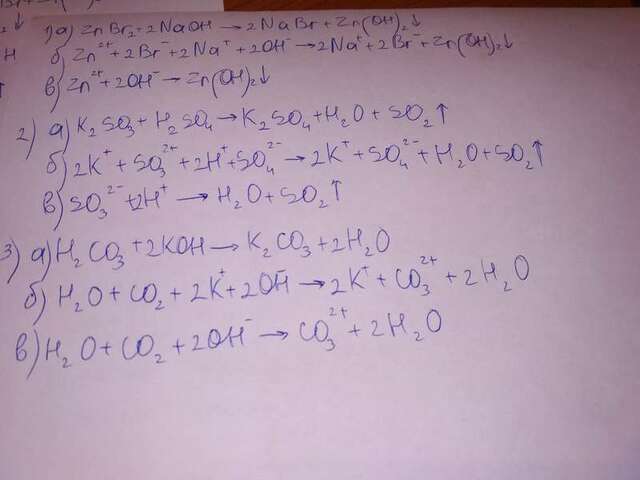 1) а) ZnBr₂+2NaOH → 2NaBr+Zn(OH)₂↓
б) Zn²⁺+2Br⁻+2Na⁺+2OH⁻ → 2Na⁺+2Br⁻+Zn(OH)₂↓
в) Zn²⁺+2OH⁻ → Zn(OH)₂↓
2) а) K₂SO₃+H₂SO₄ → K₂SO₄+H₂O+SO₂↑
б) 2K⁺+SO₃²⁺+2H⁺+SO₄²⁻ → 2K⁺+SO₄²⁻+H₂O+SO₂↑
в) SO₃²⁻+2H⁺ → H₂O+SO₂↑
3) а) H₂CO₃+2KOH → K₂CO₃+2H₂O
б) H₂O+CO₂+2K⁺+2OH⁻ → 2K⁺+CO₃²⁺+2H₂O
в) H₂O+CO₂+2OH⁻ → CO₃²⁺+2H₂O